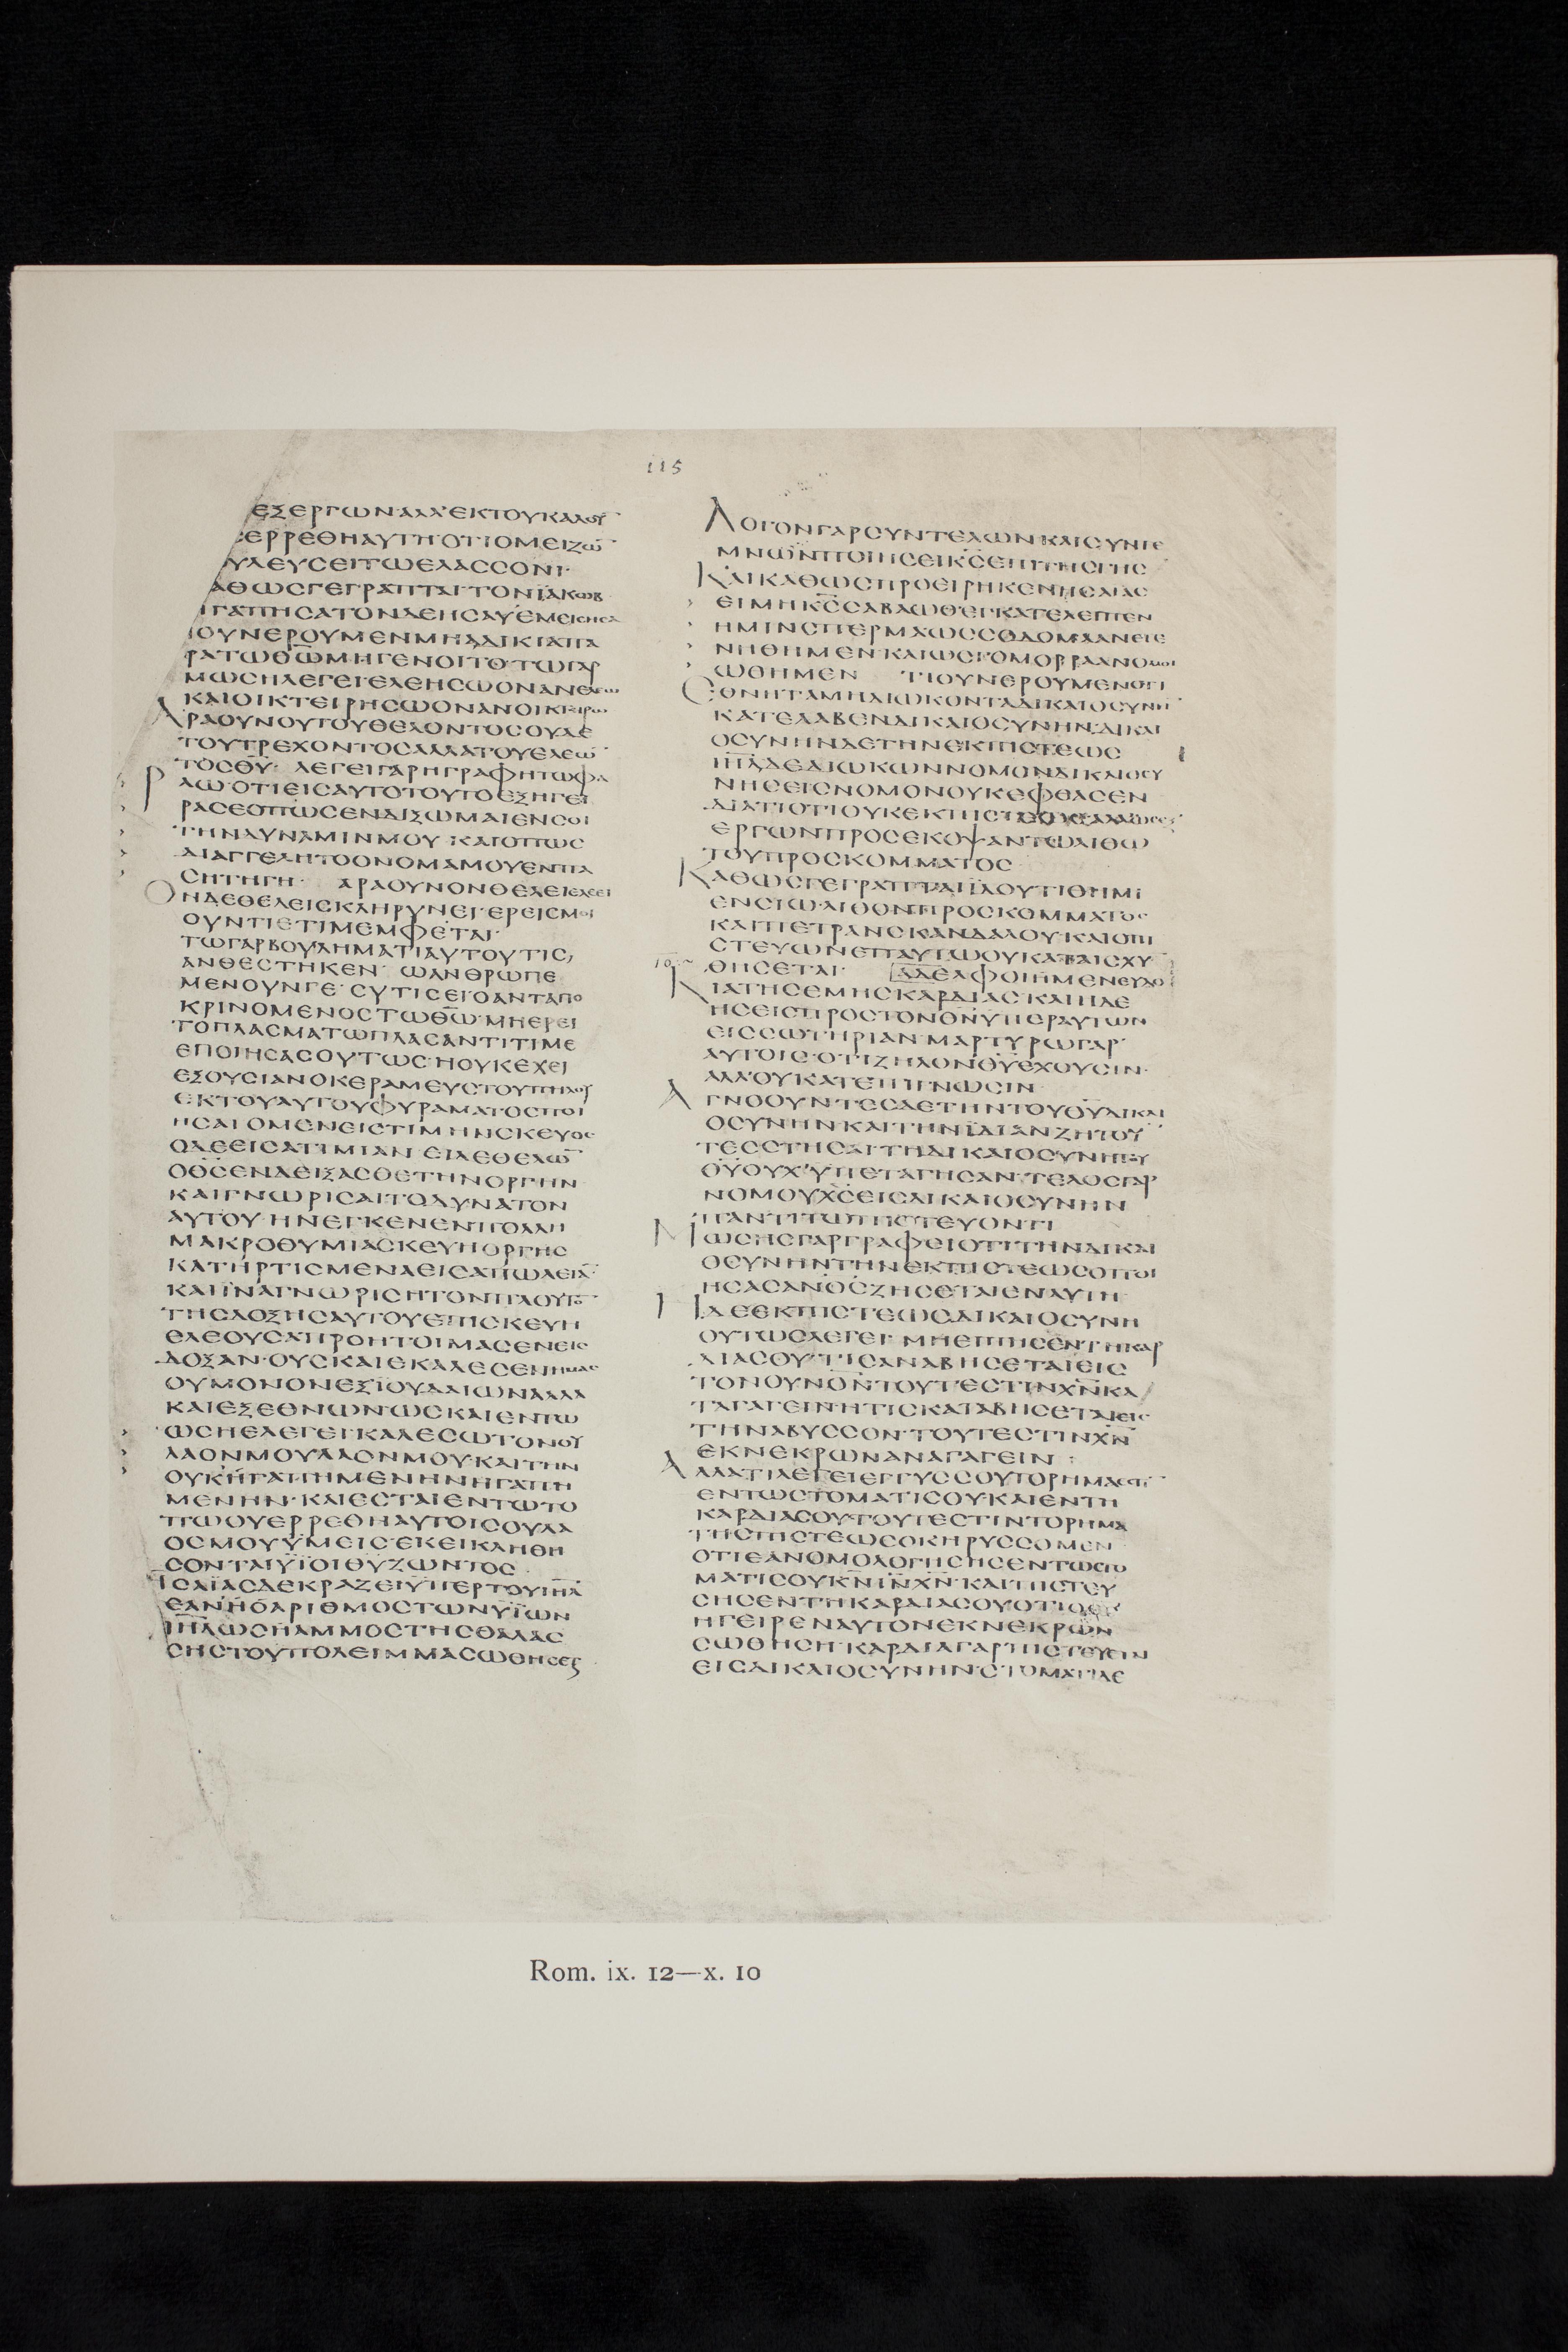 115
ΕΞΕΡΓΩΝ·ΑΛΛ'ΕΚΤΟΥΚΑΛΟΥ
ΕΡΡΕΘΗΑΥΤΗ·ΟΤΙΟΜΕΙΖΩ̅
ΥΛΕΥCΕΙΤΩΕΛΑCCΟΝΙ·
ΑΘΩCΓΕΓΡΑΠΤΑΙ·ΤΟΝΪΑΚΩΒ
ΓΑΠΗCΑΤΟΝΔΕΗCΑΥΕΜΕΙCΗCΑ
ΙΟΥΝΕΡΟΥΜΕΝΜΗΑΔΙΚΙΑΠΑ
ΡΑΤΩΘ̅Ω̅ΜΗΓΕΝΟΙΤΟ·ΤΩΓΑΡ
ΜΩCΗΛΕΓΕΙ·ΕΛΕΗCΩΟΝΑΝΕΛΕΩ
ΚΑΙΟΙΚΤΕΙΡΗCΩΟΝΑΝΟΙΚΤΕΙΡΩ
ΑΡΑΟΥΝΟΥΤΟΥΘΕΛΟΝΤΟCΟΥΔΕ
ΤΟΥΤΡΕΧΟΝΤΟCΑΛΛΑΤΟΥΕΛΕΩ̅
ΤΟCΘ̅Υ̅· ΛΕΓΕΙΓΑΡΗΓΡΑΦΗΤΩΦΑ
ΡΑΩ·ΟΤΙΕΙCΑΥΤΟΤΟΥΤΟΕΞΗΓΕΙ
ΡΑCΕΟΠΩCΕΝΔΙΞΩΜΑΙΕΝCΟΙ
ΤΗΝΔΥΝΑΜΙΝΜΟΥ·ΚΑΙΟΠΩC
ΔΙΑΓΓΕΛΗΤΟΟΝΟΜΑΜΟΥΕΝΠΑ
CΗΤΗΓΗ· ΑΡΑΟΥΝΟΝΘΕΛΕΙΕΛΕΕΙ
ΟΝΔΕΘΕΛΕΙCΚΛΗΡΥΝΕΙ·ΕΡΕΙCΜΟΙ
ΟΥΝΤΙΕΤΙΜΕΜΦΕΤΑΙ·
ΤΩΓΑΡΒΟΥΛΗΜΑΤΙΑΥΤΟΥΤΙC
ΑΝΘΕCΤΗΚΕΝ· ΩΑΝΘΡΩΠΕ
ΜΕΝΟΥΝΓΕ·CΥΤΙCΕΙ·ΟΑΝΤΑΠΟ
ΚΡΙΝΟΜΕΝΟCΤΩΘ̅Ω̅·ΜΗΕΡΕΙ
ΤΟΠΛΑCΜΑΤΩΠΛΑCΑΝΤΙΤΙΜΕ
ΕΠΟΙΗCΑCΟΥΤΩC·ΗΟΥΚΕΧΕΙ
ΕΞΟΥCΙΑΝΟΚΕΡΑΜΕΥCΤΟΥΠΗΛΟΥ
ΕΚΤΟΥΑΥΤΟΥΦΥΡΑΜΑΤΟCΠΟΙ
ΗCΑΙΟΜΕΝΕΙCΤΙΜΗΝCΚΕΥΟC
ΟΔΕΕΙCΑΤΙΜΙΑΝ·ΕΙΔΕΘΕΛΩ̅
ΟΘ̅C̅ΕΝΔΕΙΞΑCΘΕΤΗΝΟΡΓΗΝ
ΚΑΙΓΝΩΡΙCΑΙΤΟΔΥΝΑΤΟΝ
ΑΥΤΟΥ·ΗΝΕΓΚΕΝΕΝΠΟΛΛΗ
ΜΑΚΡΟΘΥΜΙΑCΚΕΥΗΟΡΓΗC
ΚΑΤΗΡΤΙCΜΕΝΑΕΙCΑΠΩΛΕΙΑ̅
ΚΑΙΪΝΑΓΝΩΡΙCΗΤΟΝΠΛΟΥΤΟ̅
ΤΗCΔΟΞΗCΑΥΤΟΥΕΠΙCΚΕΥΗ
ΕΛΕΟΥCΑΠΡΟΗΤΟΙΜΑCΕΝΕΙC
ΔΟΞΑΝ·ΟΥCΚΑΙΕΚΑΛΕCΕΝΗΜΑC
ΟΥΜΟΝΟΝΕΞΙΟΥΔΑΙΩΝΑΛΛΑ
ΚΑΙΕΞΕΘΝΩΝ·ΩCΚΑΙΕΝΤΩ
ΩCΗΕΛΕΓΕΙ·ΚΑΛΕCΩΤΟΝΟΥ
ΛΑΟΝΜΟΥΛΑΟΝΜΟΥ·ΚΑΙΤΗΝ
ΟΥΚΗΓΑΠΗΜΕΝΗΝΗΓΑΠΗ
ΜΕΝΗΝ·ΚΑΙΕCΤΑΙΕΝΤΩΤΟ
ΠΩΟΥΕΡΡΕΘΗΑΥΤΟΙCΟΥΛΑ
ΟCΜΟΥΫΜΕΙC·ΕΚΕΙΚΛΗΘΗ
CΟΝΤΑΙΫΙΟΙΘ̅Υ̅ΖΩΝΤΟC
ΗCΑΪΑCΔΕΚΡΑΖΕΙΫΠΕΡΤΟΥΙ̅Η̅Λ̅
ΕΑΝΗΟΑΡΙΘΜΟCΤΩΝΥΪΩΝ
Ι̅Η̅Λ̅ΩCΗΑΜΜΟCΤΗCΘΑΛΑC
CΗCΤΟΥΠΟΛΕΙΜΜΑCΩΘΗCΕΤΑΙ
ΛΟΓΟΝΓΑΡCΥΝΤΕΛΩΝΚΑΙCΥΝΤΕ
ΜΝΩΝΠΟΙΗCΕΙΚ̅C̅ΕΠΙΤΗCΓΗC
ΚΑΙΚΑΘΩCΠΡΟΕΙΡΗΚΕΝΗCΑΙΑC
ΕΙΜΗΚ̅C̅CΑΒΑΩΘ·ΕΓΚΑΤΕΛΕΙΠΕΝ
ΗΜΙΝCΠΕΡΜΑΩCCΟΔΟΜΑΑΝΕΓΕ
ΝΗΘΗΜΕΝ·ΚΑΙΩCΓΟΜΟΡΡΑΑΝΟΜΟΙ
ΩΘΗΜΕΝ ΤΙΟΥΝΕΡΟΥΜΕΝΟΤΙ
ΕΘΝΗΤΑΜΗΔΙΩΚΟΝΤΑΔΙΚΑΙΟCΥΝΗ̅
ΚΑΤΕΛΑΒΕΝΔΙΚΑΙΟCΥΝΗΝ·ΔΙΚΑΙ
ΟCΥΝΗΝΔΕΤΗΝΕΚΠΙCΤΕΩC
Ι̅Η̅Λ̅ΔΕΔΙΩΚΩΝΝΟΜΟΝΔΙΚΑΙΟCΥ
ΝΗCΕΙCΝΟΜΟΝΟΥΚΕΦΘΑCΕΝ
ΔΙΑΤΙΟΤΙΟΥΚΕΚΠΙCΤΕΩCΑΛΛΩCΕΞ
ΕΡΓΩΝΠΡΟCΕΚΟΨΑΝΤΩΛΙΘΩ
ΤΟΥΠΡΟCΚΟΜΜΑΤΟC
ΚΑΘΩCΓΕΓΡΑΠΤΑΙΪΔΟΥΤΙΘΗΜΙ
ΕΝCΙΩΛΙΘΟΝΠΡΟCΚΟΜΜΑΤΟC
ΚΑΙΠΕΤΡΑΝCΚΑΝΔΑΛΟΥ·ΚΑΙΟΠΙ
CΤΕΥΩΝΕΠΑΥΤΩΟΥΚΑΤΑΙCΧΥ̅
ΘΗCΕΤΑΙ· ΑΔΕΛΦΟΙΗΜΕΝΕΥΔΟ
ΚΙΑΤΗCΕΜΗCΚΑΡΔΙΑC·ΚΑΙΗΔΕ
ΗCΕΙCΠΡΟCΤΟΝΘ̅Ν̅ΥΠΕΡΑΥΤΩΝ
ΕΙCCΩΤΗΡΙΑΝ·ΜΑΡΤΥΡΩΓΑΡ
ΑΥΤΟΙC·ΟΤΙΖΗΛΟΝΘ̅Υ̅ΕΧΟΥCΙΝ·
ΑΛΛ'ΟΥΚΑΤΕΠΙΓΝΩCΙΝ·
ΑΓΝΟΟΥΝΤΕCΔΕΤΗΝΤΟΥΘ̅Υ̅ΔΙΚΑΙ
ΟCΥΝΗΝΚΑΙΤΗΝΪΔΙΑΝΖΗΤΟΥ̅
ΤΕCCΤΗCΑΙ·ΤΗΔΙΚΑΙΟCΥΝΗΤΟΥ
Θ̅Υ̅ΟΥΧ'ΥΠΕΤΑΓΗCΑΝ·ΤΕΛΟCΓΑΡ
ΝΟΜΟΥΧ̅C̅ΕΙCΔΙΚΑΙΟCΥΝΗΝ
ΠΑΝΤΙΤΩΠΙCΤΕΥΟΝΤΙ
ΜΩCΗCΓΑΡΓΡΑΦΕΙΟΤΙΤΗΝΔΙΚΑΙ
ΟCΥΝΗΝΤΗΝΕΚΠΙCΤΕΩCΟΠΟΙ
ΗCΑCΑΝΟ̅C̅ΖΗCΕΤΑΙΕΝΑΥΤΗ
ΗΔΕΕΚΠΙCΤΕΩCΔΙΚΑΙΟCΥΝΗ
ΟΥΤΩCΛΕΓΕΙ·ΜΗΕΠΗCΕΝΤΗΚΑΡ
ΔΙΑCΟΥ·ΤΙCΑΝΑΒΗCΕΤΑΙΕΙC
ΤΟΝΟΥΝΟ̅Ν̅ΤΟΥΤ'ΕCΤΙΝΧ̅Ν̅ΚΑ
ΤΑΓΑΓΕΙΝ·ΗΤΙCΚΑΤΑΒΗCΕΤΑΙΕΙC
ΤΗΝΑΒΥCCΟΝ·ΤΟΥΤΕCΤΙΝΧ̅Ν̅
ΕΚΝΕΚΡΩΝΑΝΑΓΑΓΕΙΝ :
ΑΛΛΑΤΙΛΕΓΕΙ·ΕΓΓΥCCΟΥΤΟΡΗΜΑΕCΤΙ̅
ΕΝΤΩCΤΟΜΑΤΙCΟΥΚΑΙΕΝΤΗ
ΚΑΡΔΙΑCΟΥ·ΤΟΥΤΕCΤΙΝΤΟΡΗΜΑ
ΤΗCΠΙCΤΕΩCΟΚΗΡΥCCΟΜΕΝ
ΟΤΙΕΑΝΟΜΟΛΟΓΗCΗCΕΝΤΩCΤΟ
ΜΑΤΙCΟΥΚ̅Ν̅Ι̅Ν̅Χ̅Ν̅·ΚΑΙΠΙCΤΕΥ
CΗCΕΝΤΗΚΑΡΔΙΑCΟΥΟΤΙΟΘ̅C̅
ΗΓΕΙΡΕΝΑΥΤΟΝΕΚΝΕΚΡΩΝ
CΩΘΗCΗ·ΚΑΡΔΙΑΓΑΡΠΙCΤΕΥΕΤΑΙ
ΕΙCΔΙΚΑΙΟCΥΝΗΝ·CΤΟΜΑΤΙΔΕ
Rom. ix. 12—x. 10